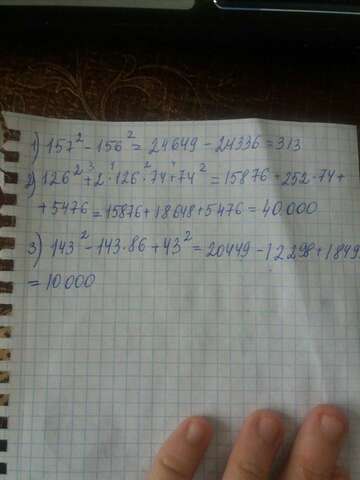 1) 157² - 156² = 24649 - 24336 = 313
2) 126² + 2 · 126 · 74 + 74² = 15876 + 252 · 74 +
+ 5476 = 15876 + 18648 + 5476 = 40.000
3) 143² - 143 · 86 + 43² = 20449 - 12298 + 1849
= 10.000